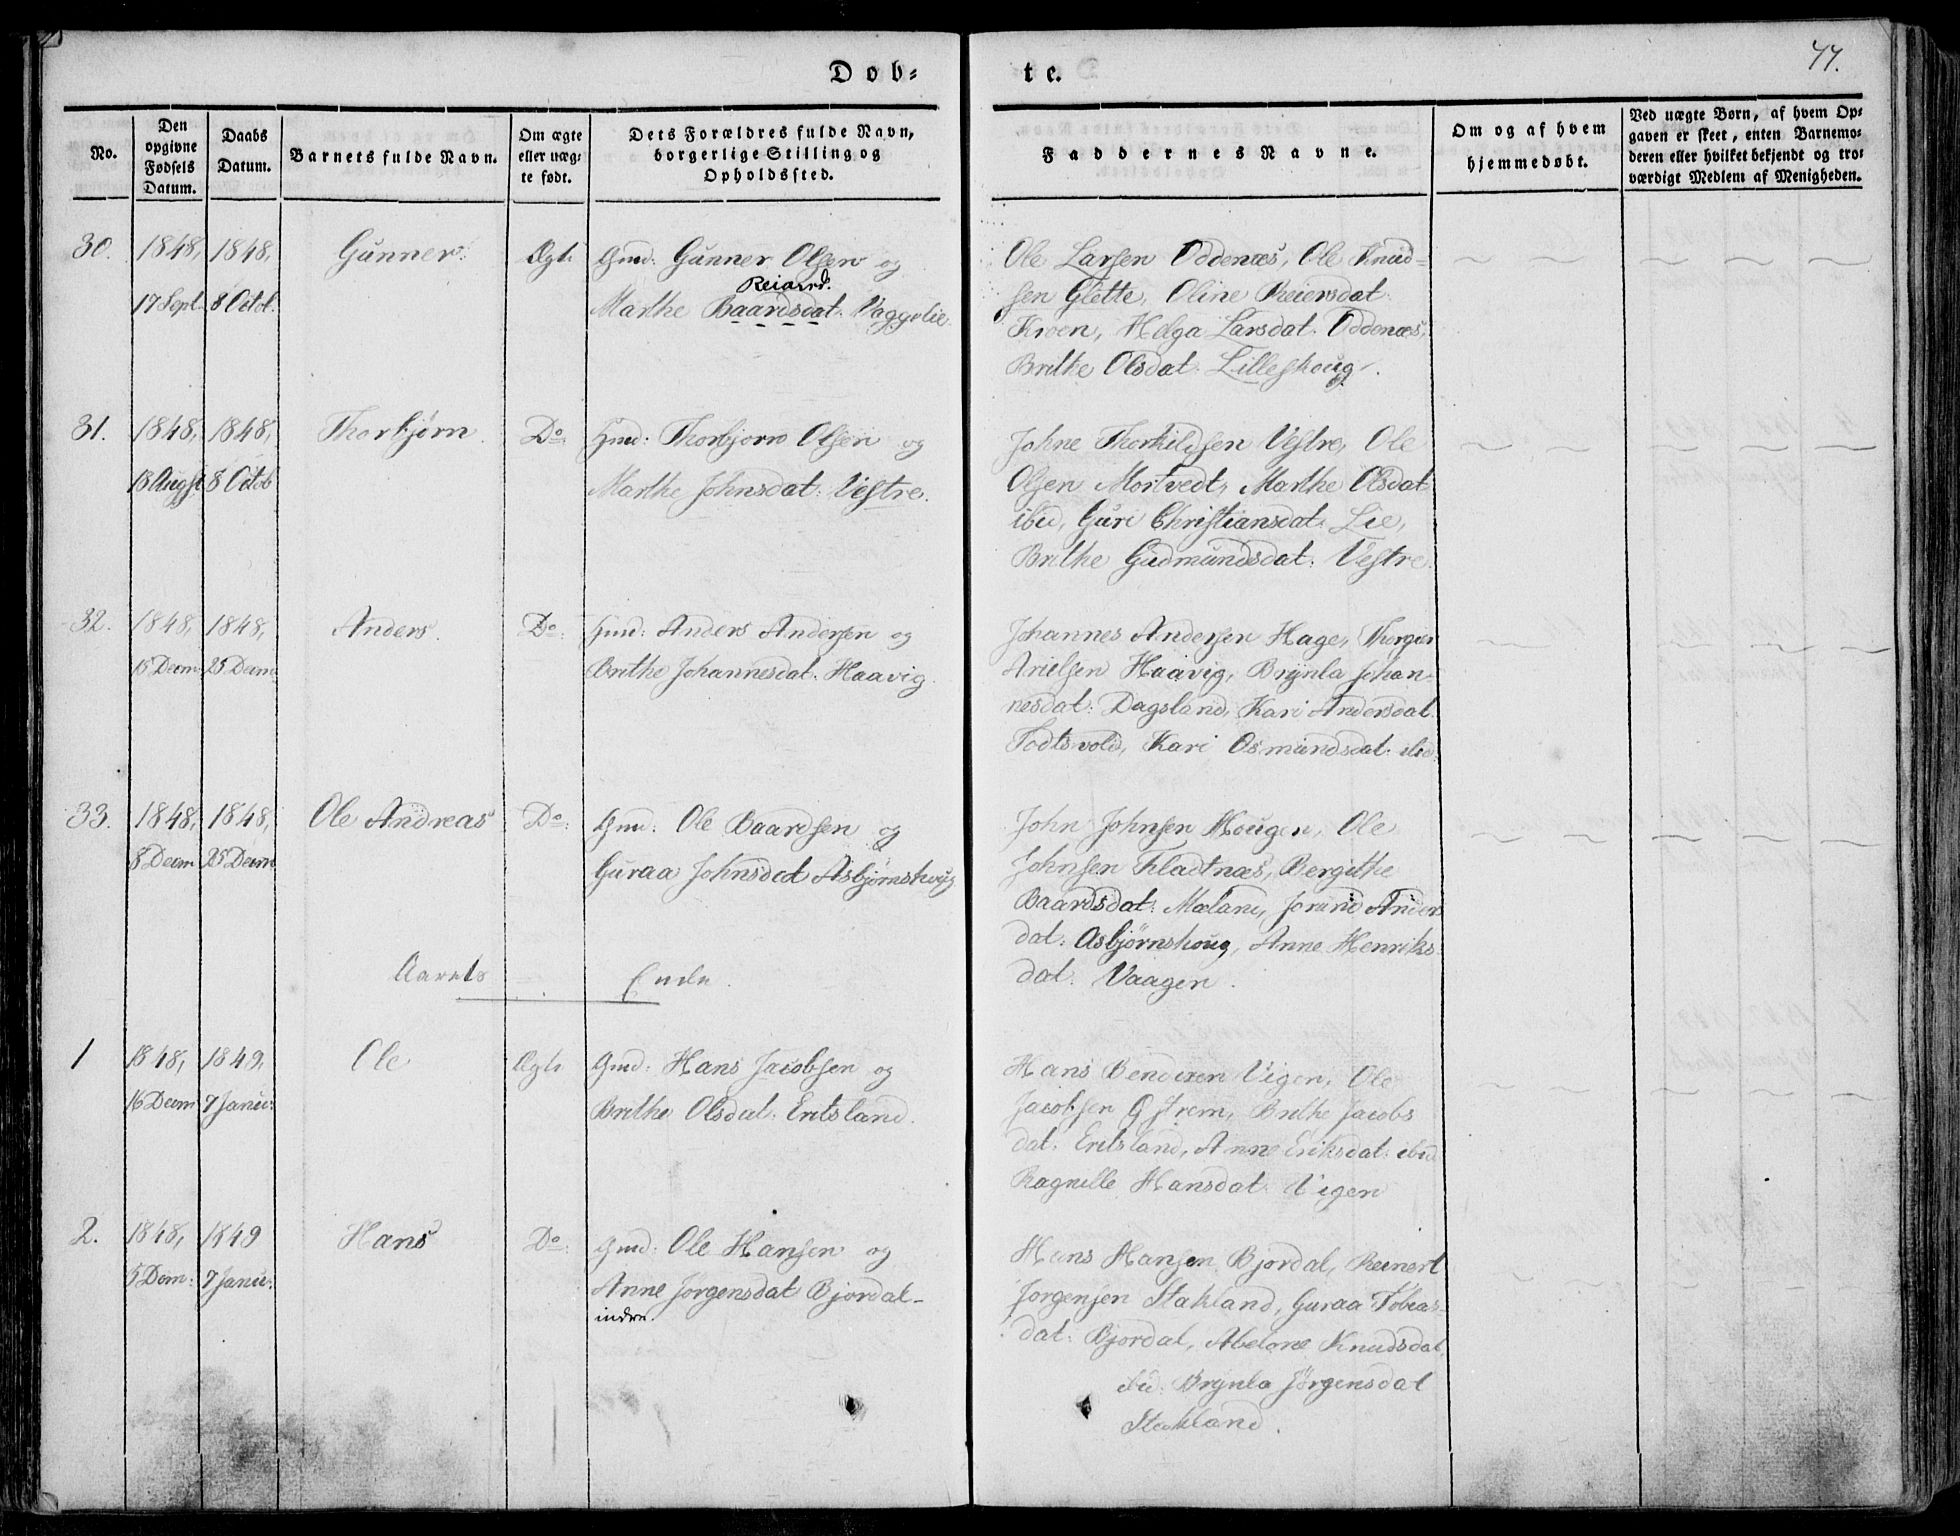 Døb-
te.
77.
No.
Den opgivne Fødsels Datum.
Daabs Datum.
Barnets fulde Navn.
Om ægte eller uæg-
te født.
Dets Forældres fulde Navn,
borgerlige Stilling og
Opholdssted.
Faddernes Navne.
Om og af hvem
hjemmedøbt.
Ved uægte Børn, af hvem Op-
gaven er skeet, enten Barnemo-
deren eller hvilket bekjendt og tro-
værdigt Medlem af Menigheden.
30. 1848, 1848, Gunner. Ægte Gmd: Gunner Olsen og
Reiarsd.
17 Sept. 8 Octob. Marthe Baardsdat. Vaggelie
Ole Larsen Oddenæs, Ole Knud-
sen Glette, Oline Reiersdat.
Kroen, Helga Larsdat. Oddenæs,
Brithe Olsdat. Lilleskoug.
31. 1848, 1848, Thorbjørn. Do: Gmd: Thorbjørn Olsen og
18 August 8 Octob Marthe Johnsdat: Vestre.
Johne Thorkildsen Vestre, Ole
Olsen Mortvedt, Marthe Olsdat
ibid, Guri Christiansdat: Lie,
Brithe Gudmundsdat: Vestre.
32. 1848, 1848, Anders. Do: Gmd: Anders Andersen og
15 Decm 25 Decm Brithe Johannesdat. Haavig.
Johannes Andersen Hage, Thorger
Arielsen Haavig, Brynla Johan-
nesdat: Dagsland, Kari Andersdat.
Todtsvold, Kari Osmundsdat. ibid.
33. 1848, 1848, Ole Andreas Do: Gmd: Ole Baardsen og
8 Decm 25 Decm Guraa Johnsdat Asbjørnshoug
John Johnsen Hougen, Ole
Johnsen Fladtnæs, Bergithe
Baardsdat: Mæland, Jorund Anders
dat: Asbjørnshoug, Anne Henriks-
dat. Vaagen.
Aarets Ende.
1 1848, 1849, Ole Ægte Gmd: Hans Jacobsen og
16 Decm 7 Janu: Brithe Olsdat. Eritsland.
Hans Bendixen Vigen, Ole
Jacobsen Østrem, Brithe Jacobs
dat: Eritsland, Anne Eriksdat. ibid
Ragnille Hansdat. Vigen
2. 1848, 1849 Hans Do: Gmd: Ole Hansen og
5 Decm: 7 Janu: Anne Jørgensdat Bjordal-
indre.
Hans Hansen Bjordal, Reinert
Jørgensen Stakland, Guraa Tobias-
dat: Bjordal, Abelone Knudsdat.
ibid: Brynla Jørgensdat
Stakland.